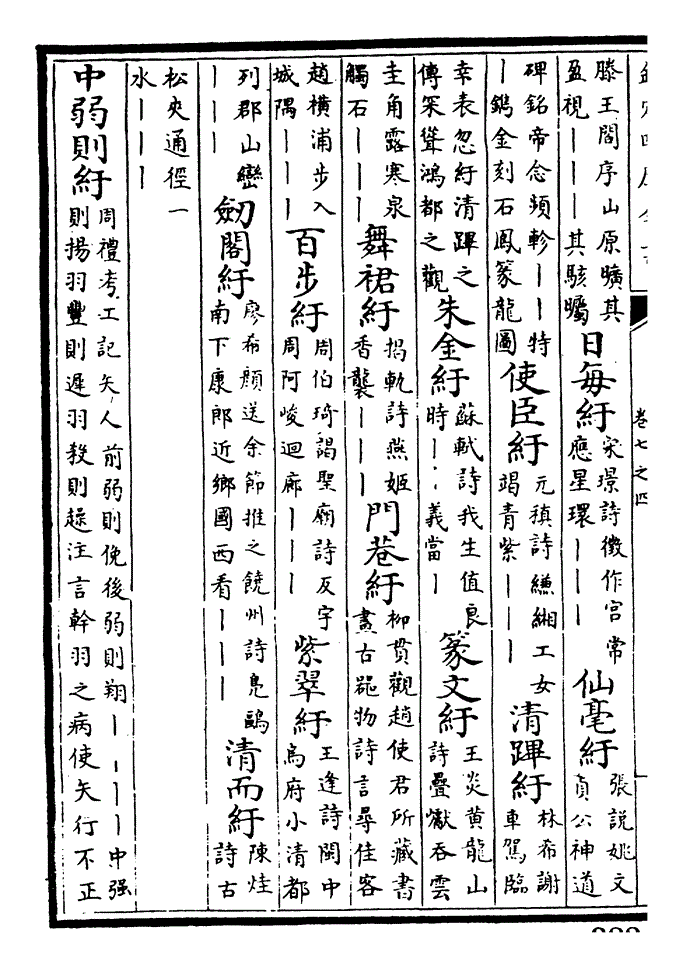 卷七之四
滕王閣序山原曠其
盈視｜｜｜其駭矚
日每紆
宋璟詩徵作宫常
應星環｜｜｜
仙毫紆
張説姚文
貞公神道
碑銘帝念頻軫｜｜特
｜鐫金刻石鳳篆龍圖
使臣紆
元稹詩縑緗工女
竭青紫｜｜｜
清蹕紆
林希謝
車駕臨
幸表忽紆清蹕之
傳罙聳鴻都之觀
朱金紆
蘇軾詩我生值良
時｜｜義當｜
篆文紆
王炎黄龍山
詩疊巘吞雲
圭角露寒泉
觸石｜｜｜
舞裙紆
揭軌詩燕姬
香襲｜｜｜
門巷紆
柳貫觀趙使君所藏書
畫古器物詩言尋佳客
趙横浦步入
城隅｜｜｜
百步紆
周伯琦謁聖廟詩反宇
周阿峻迴廊｜｜｜
紫翠紆
王逢詩閩中
烏府小清都
列郡山巒
｜｜｜
劒閣紆
廖希顔送余節推之饒州詩凫鷗
南下康郎近鄉國西看｜｜｜
清而紆
陳烓
詩古
松夾通徑一
水｜｜｜
中弱則紆
周禮考工記矢人前弱則俛後弱則翔｜｜｜｜中强
則揚羽豐則遲羽殺則趮注言幹羽之病使矢行不正